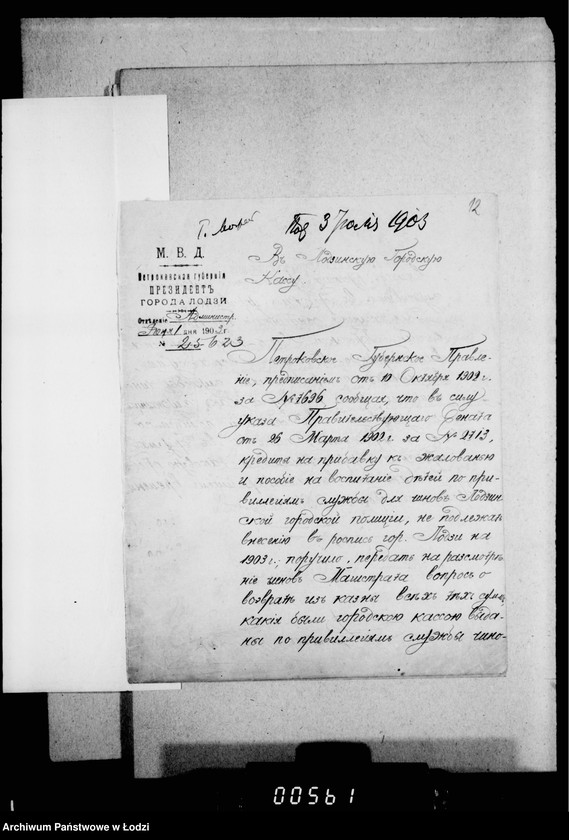 12
Г.
3 Июля 1903
М. В. Д.
Петроковской губерніи
ПРЕЗИДЕНТЪ
ГОРОДА ЛОДЗИ
Отдѣленіе Администр.
дня 1902 г.
№ 25623
Въ Лодзинскую Городскую
Кассу.
Петроковское Губернское Правле-
ніе, предписаніемъ отъ 10 Октября 1902 г.
за № 7696, сообщая, что въ силу
указа Правительствующаго Сената
отъ 26 Марта 1902 г. за № 2713,
кредитъ на прибавку къ жалованью
и пособіе на воспитаніе дѣтей по при-
виллегіямъ службы для чиновъ Лодзин
ской городской полиціи, не подлежатъ
внесенію въ роспись гор. Лодзи на
1903 г., поручило, передать на разсмотрѣ
ніе чиновъ Магистрата вопросъ о
возвратѣ изъ казны всѣхъ тѣхъ суммъ,
какія были городскою кассою выда-
ны по привиллегіямъ службы чино-
00561
Archiwum Państwowe w Łodzi